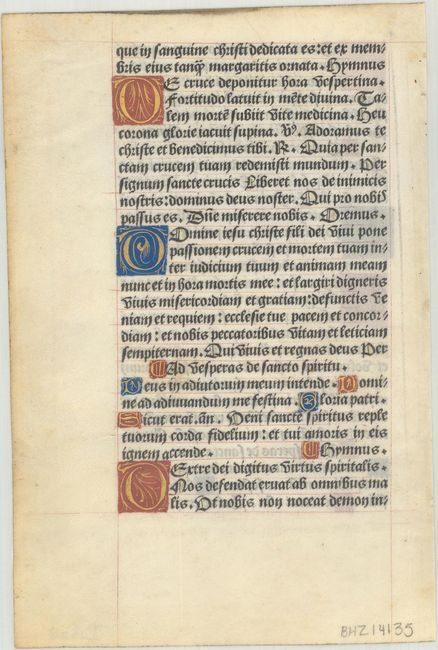 que in sanguine christi dedicata es: et ex mem-
bris eius tanq̃ margaritis ornata. Hymnus
DE cruce deponitur hora vespertina.
Fortitudo latuit in mẽte divina. Ta-
lem mortẽ subiit vite medicina. Heu
corona glorie iacuit supina. V̸. Adoramus te
christe et benedicimus tibi. R. Quia per san-
ctam crucem tuam redemisti mundum. Per
signum sancte crucis Liberet nos de inimicis
nostris: dominus deus noster. Qui pro nobiꝰ
passus es. Dñe miserere nobis. Oremus.
DOmine iesu christe fili dei vivi pone
passionem crucem et mortem tuam in-
ter iudicium tuum et animam meam
nunc et in hora mortis mee: et largiri digneris
vivis misericordiam et gratiam: defunctis ve
niam et requiem: ecclesie tue pacem et concor-
diam: et nobis peccatoribus vitam et leticiam
sempiternam. Qui vivis et regnas deus Per
Ad vesperas de sancto spiritu.
Deus in adiutorium meum intende. Domi-
ne ad adiuvandum me festina. Gloria patri.
Sicut erat. añ. Veni sancte spiritus reple
tuorum corda fidelium: et tui amoris in eis
ignem accende. Hymnus.
DExtre dei digitus virtus spiritalis.
Nos defendat eruat ab omnibus ma
lis. Ut nobis non noceat demon in-
BHZ14135